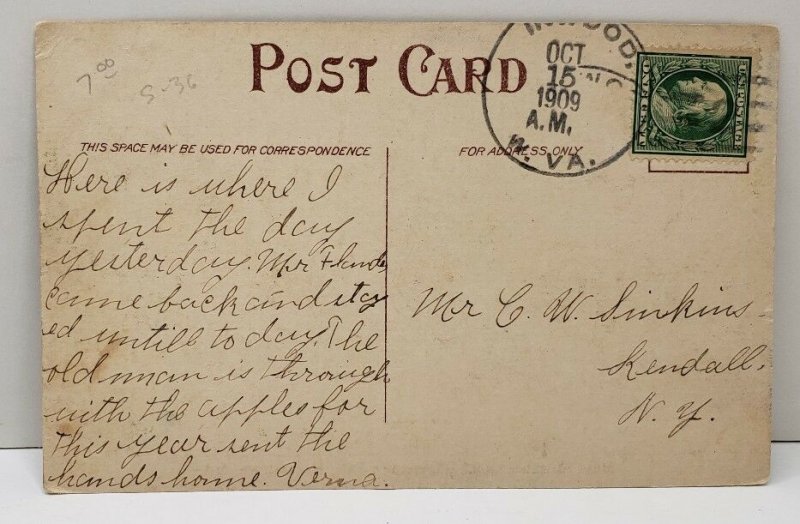 7.00
S-36
POST CARD
INWOOD,
OCT
15
1909
A.M.
W. VA.
U.S. POSTAGE
THIS SPACE MAY BE USED FOR CORRESPONDENCE
FOR ADDRESS ONLY
Here is where I
spent the day
yesterday. Mr
came back and stay
ed untill to day. The
old man is through
with the apples for
this year sent the
hands home. Verna.
Mr C. W. Sinkins.
Kendall.
N. Y.